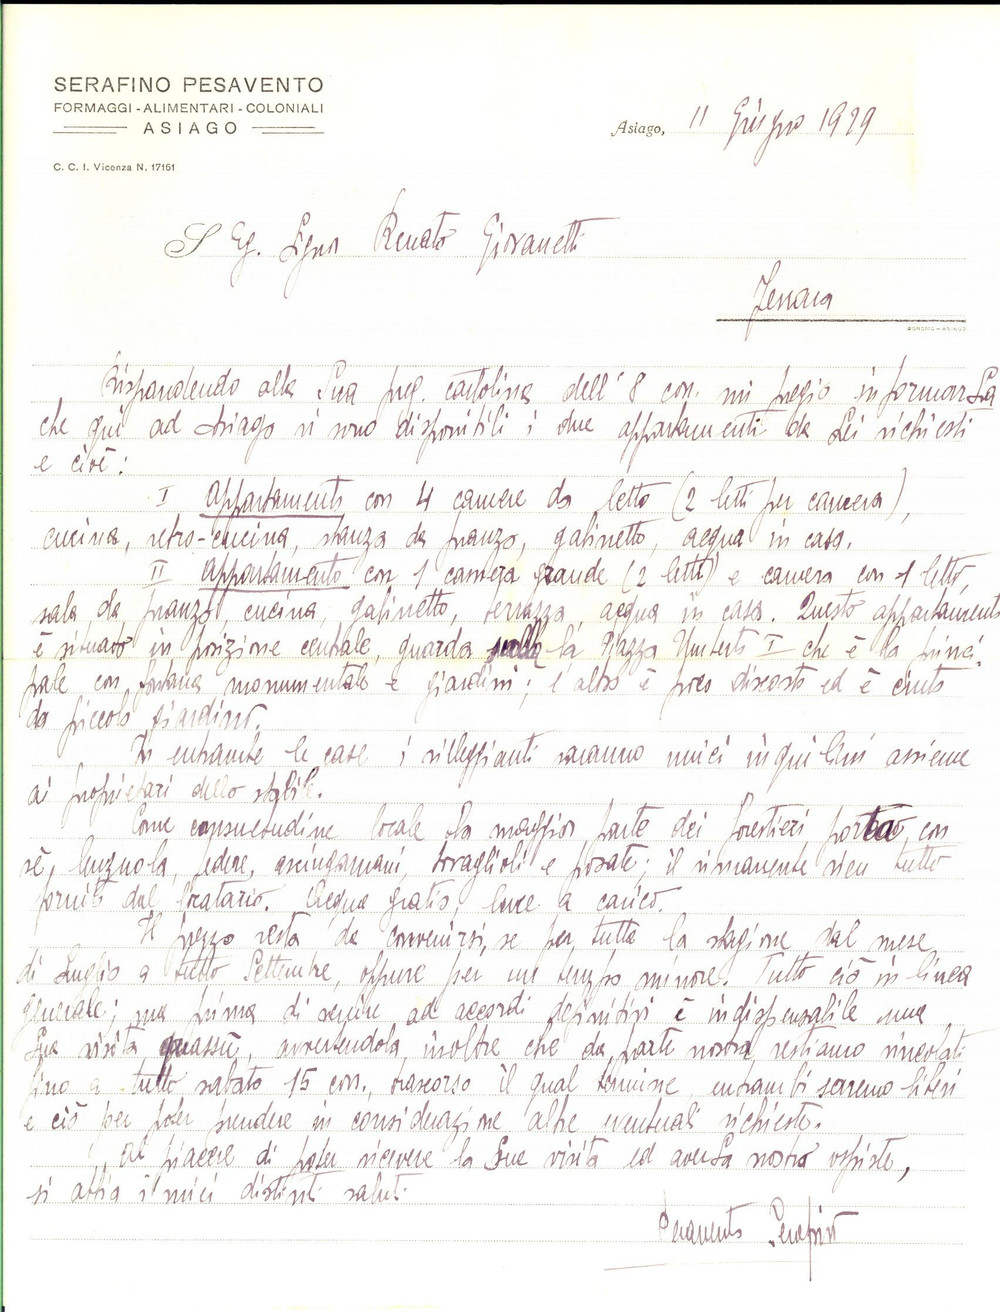 SERAFINO PESAVENTO
FORMAGGI - ALIMENTARI - COLONIALI
ASIAGO
C. C. I. Vicenza N. 17161
Asiago, 11 Giugno 1929
S Eg. Signor Renato Giovanetti
Ferrara
BONOMO - ASIAGO
Rispondendo alla Sua preg. cartolina dell' 8 corr. mi pregio informarLa
che qui ad Asiago vi sono disponibili i due appartamenti da Lei richiesti
e cioè:
I Appartamento con 4 camere da letto (2 letti per camera),
cucina, retro-cucina, stanza da pranzo, gabinetto, acqua in casa.
II Appartamento con 1 camera grande (2 letti) e camera con 1 letto,
sala da pranzo, cucina, gabinetto, terrazza, acqua in casa. Questo appartamento
è situato in posizione centrale, guarda la Piazza Umberto I che è la princi-
pale con fontana monumentale e giardini; l'altro è poco discosto ed è cinto
da piccolo giardino.
In entrambe le case i villeggianti saranno unici inquilini assieme
ai proprietari dello stabile.
Come consuetudine locale la maggior parte dei forestieri porta con
sè, lenzuola, federe, asciugamani, tovaglioli e posate; il rimanente vien tutto
fornito dal locatario. Acqua gratis, luce a carico.
Il prezzo resta da convenirsi, se per tutta la stagione dal mese
di Luglio a tutto Settembre, oppure per un tempo minore. Tutto ciò in linea
generale; ma prima di venire ad accordi definitivi è indispensabile una
Sua visita quassù, avvertendola inoltre che da parte nostra restiamo vincolati
fino a tutto sabato 15 corr., trascorso il qual termine, entrambi saremo liberi
e ciò per poter prendere in considerazione altre eventuali richieste.
Al piacere di poter ricevere la Sua visita ed averLa nostro ospite,
si abbia i miei distinti saluti.
Pesavento Serafino